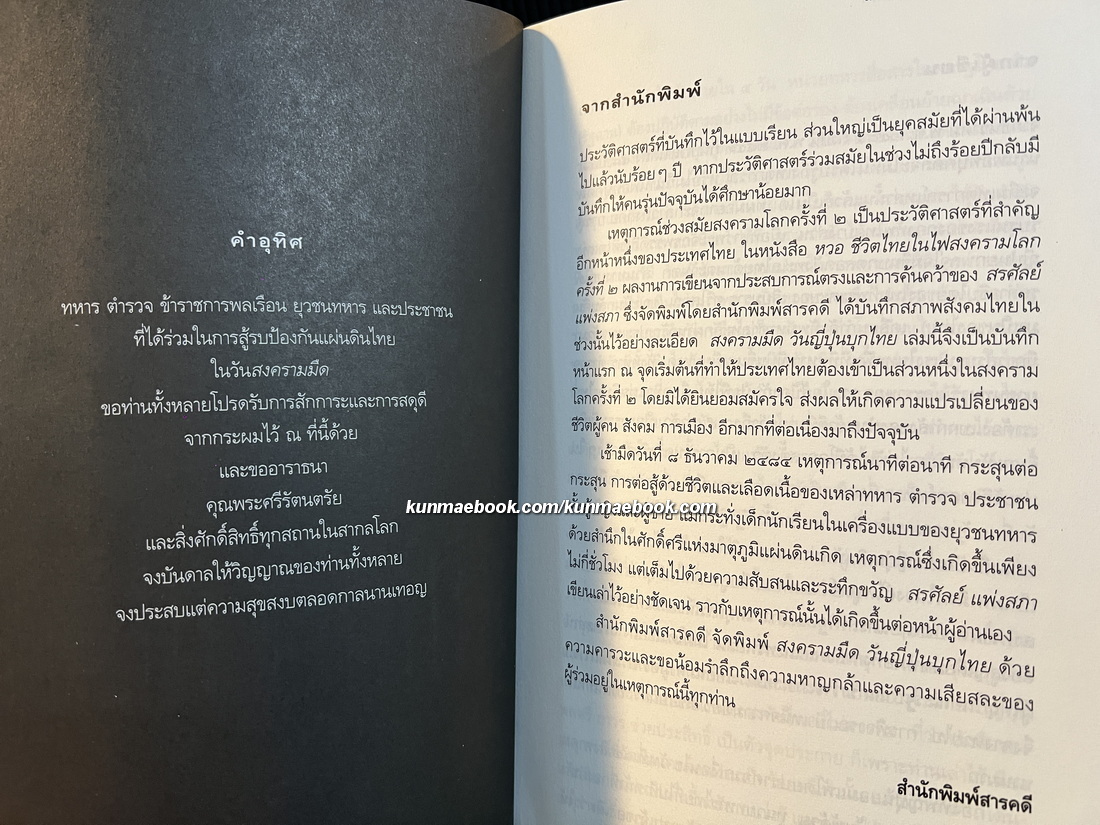 คำอุทิศ
ทหาร ตำรวจ ข้าราชการพลเรือน ยุวชนทหาร และประชาชน
ที่ได้ร่วมในการสู้รบป้องกันแผ่นดินไทย
ในวันสงครามมืด
ขอท่านทั้งหลายโปรดรับการสักการะและการสดุดี
จากกระผมไว้ ณ ที่นี้ด้วย
และขออาราธนา
คุณพระศรีรัตนตรัย
และสิ่งศักดิ์สิทธิ์ทุกสถานในสากลโลก
จงบันดาลให้วิญญาณของท่านทั้งหลาย
จงประสบแต่ความสุขสงบตลอดกาลนานเทอญ
จากสำนักพิมพ์
ประวัติศาสตร์ที่บันทึกไว้ในแบบเรียน ส่วนใหญ่เป็นยุคสมัยที่ได้ผ่านพ้น
ไปแล้วนับร้อยๆ ปี หากประวัติศาสตร์ร่วมสมัยในช่วงไม่ถึงร้อยปีกลับมี
บันทึกให้คนรุ่นปัจจุบันได้ศึกษาน้อยมาก
เหตุการณ์ช่วงสมัยสงครามโลกครั้งที่ ๒ เป็นประวัติศาสตร์ที่สำคัญ
อีกหน้าหนึ่งของประเทศไทย ในหนังสือ หวอ ชีวิตไทยในไฟสงครามโลก
ครั้งที่ ๒ ผลงานการเขียนจากประสบการณ์ตรงและการค้นคว้าของ สรศัลย์
แพ่งสภา ซึ่งจัดพิมพ์โดยสำนักพิมพ์สารคดี ได้บันทึกสภาพสังคมไทยใน
ช่วงนั้นไว้อย่างละเอียด สงครามมืด วันญี่ปุ่นบุกไทย เล่มนี้จึงเป็นบันทึก
หน้าแรก ณ จุดเริ่มต้นที่ทำให้ประเทศไทยต้องเข้าเป็นส่วนหนึ่งในสงคราม
โลกครั้งที่ ๒ โดยมิได้ยินยอมสมัครใจ ส่งผลให้เกิดความแปรเปลี่ยนของ
ชีวิตผู้คน สังคม การเมือง อีกมากที่ต่อเนื่องมาถึงปัจจุบัน
เช้ามืดวันที่ ๘ ธันวาคม ๒๔๘๔ เหตุการณ์นาทีต่อนาที กระสุนต่อ
กระสุน การต่อสู้ด้วยชีวิตและเลือดเนื้อของเหล่าทหาร ตำรวจ ประชาชน
kunmaebook.com/kunmaebook.com
ทั้งผู้หญิงและผู้ชาย แม้กระทั่งเด็กนักเรียนในเครื่องแบบของยุวชนทหาร
ด้วยสำนึกในศักดิ์ศรีแห่งมาตุภูมิแผ่นดินเกิด เหตุการณ์ซึ่งเกิดขึ้นเพียง
ไม่กี่ชั่วโมง แต่เต็มไปด้วยความสับสนและระทึกขวัญ สรศัลย์ แพ่งสภา
เขียนเล่าไว้อย่างชัดเจน ราวกับเหตุการณ์นั้นได้เกิดขึ้นต่อหน้าผู้อ่านเอง
สำนักพิมพ์สารคดี จัดพิมพ์ สงครามมืด วันญี่ปุ่นบุกไทย ด้วย
ความคารวะและขอน้อมรำลึกถึงความหาญกล้าและความเสียสละของ
ผู้ร่วมอยู่ในเหตุการณ์นี้ทุกท่าน
สำนักพิมพ์สารคดี